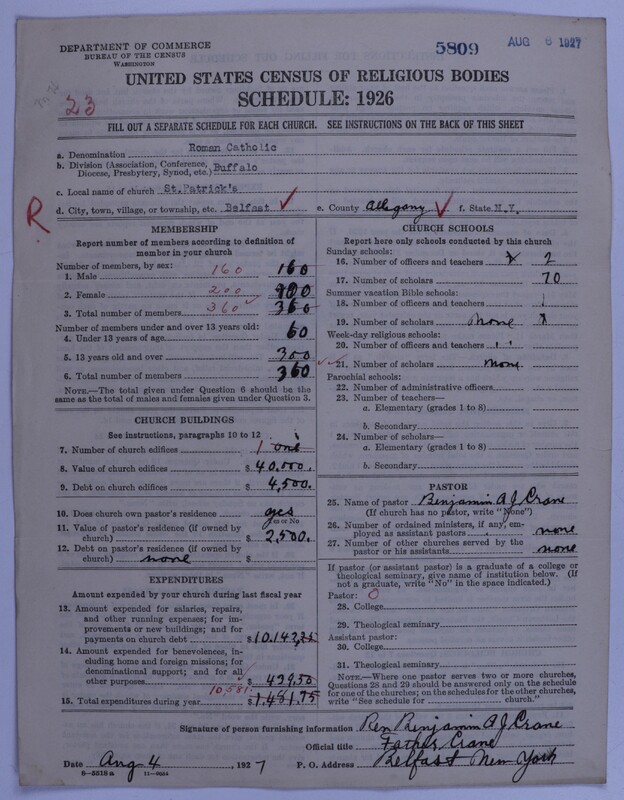 DEPARTMENT OF COMMERCE
BUREAU OF THE CENSUS
WASHINGTON
5809
AUG 6 1927
UNITED STATES CENSUS OF RELIGIOUS BODIES
SCHEDULE: 1926
23
FILL OUT A SEPARATE SCHEDULE FOR EACH CHURCH. SEE INSTRUCTIONS ON THE BACK OF THIS SHEET
a. Denomination Roman Catholic
b. Division (Association, Conference, Diocese, Presbytery, Synod, etc.) Buffalo
c. Local name of church St.Patrick's
R
d. City, town, village, or township, etc. Belfast e. County Allegany f. State N.Y.
MEMBERSHIP
Report number of members according to definition of
member in your church
Number of members, by sex:
1. Male 160 160
2. Female 200
3. Total number of members 360 360
Number of members under and over 13 years old:
4. Under 13 years of age 60
5. 13 years old and over 300
6. Total number of members 360
NOTE.—The total given under Question 6 should be the
same as the total of males and females given under Question 3.
CHURCH BUILDINGS
See instructions, paragraphs 10 to 12
7. Number of church edifices 1 one
8. Value of church edifices $ 40.000.
9. Debt on church edifices $ 4,500.
10. Does church own pastor's residence yes
Yes or No
11. Value of pastor's residence (if owned by
church) $ 2,500.
12. Debt on pastor's residence (if owned by
church) none $
EXPENDITURES
Amount expended by your church during last fiscal year
13. Amount expended for salaries, repairs,
and other running expenses; for im-
provements or new buildings; and for
payments on church debt $ 10.142,25
14. Amount expended for benevolences, in-
cluding home and foreign missions; for
denominational support; and for all
other purposes $ 439.50
10,581.
15. Total expenditures during year $
CHURCH SCHOOLS
Report here only schools conducted by this church
Sunday schools:
16. Number of officers and teachers 2
17. Number of scholars 70
Summer vacation Bible schools:
18. Number of officers and teachers
19. Number of scholars none
Week-day religious schools:
20. Number of officers and teachers
21. Number of scholars none
Parochial schools:
22. Number of administrative officers
23. Number of teachers—
a. Elementary (grades 1 to 8)
b. Secondary
24. Number of scholars—
a. Elementary (grades 1 to 8)
b. Secondary
PASTOR
25. Name of pastor Benjamin A J Crane
(If church has no pastor, write "None")
26. Number of ordained ministers, if any, em-
ployed as assistant pastors none
27. Number of other churches served by the
pastor or his assistants none
If pastor (or assistant pastor) is a graduate of a college or
theological seminary, give name of institution below. (If
not a graduate, write "No" in the space indicated.)
Pastor: 0
28. College
29. Theological seminary
Assistant pastor:
30. College
31. Theological seminary
NOTE.—Where one pastor serves two or more churches,
Questions 28 and 29 should be answered only on the schedule
for one of the churches; on the schedules for the other churches,
write "See schedule for church."
Signature of person furnishing information Rev Benjamin A J Crane
Official title Father Crane
Date Aug 4, 1927 P. O. Address Belfast New York
8—5518a 11—9024